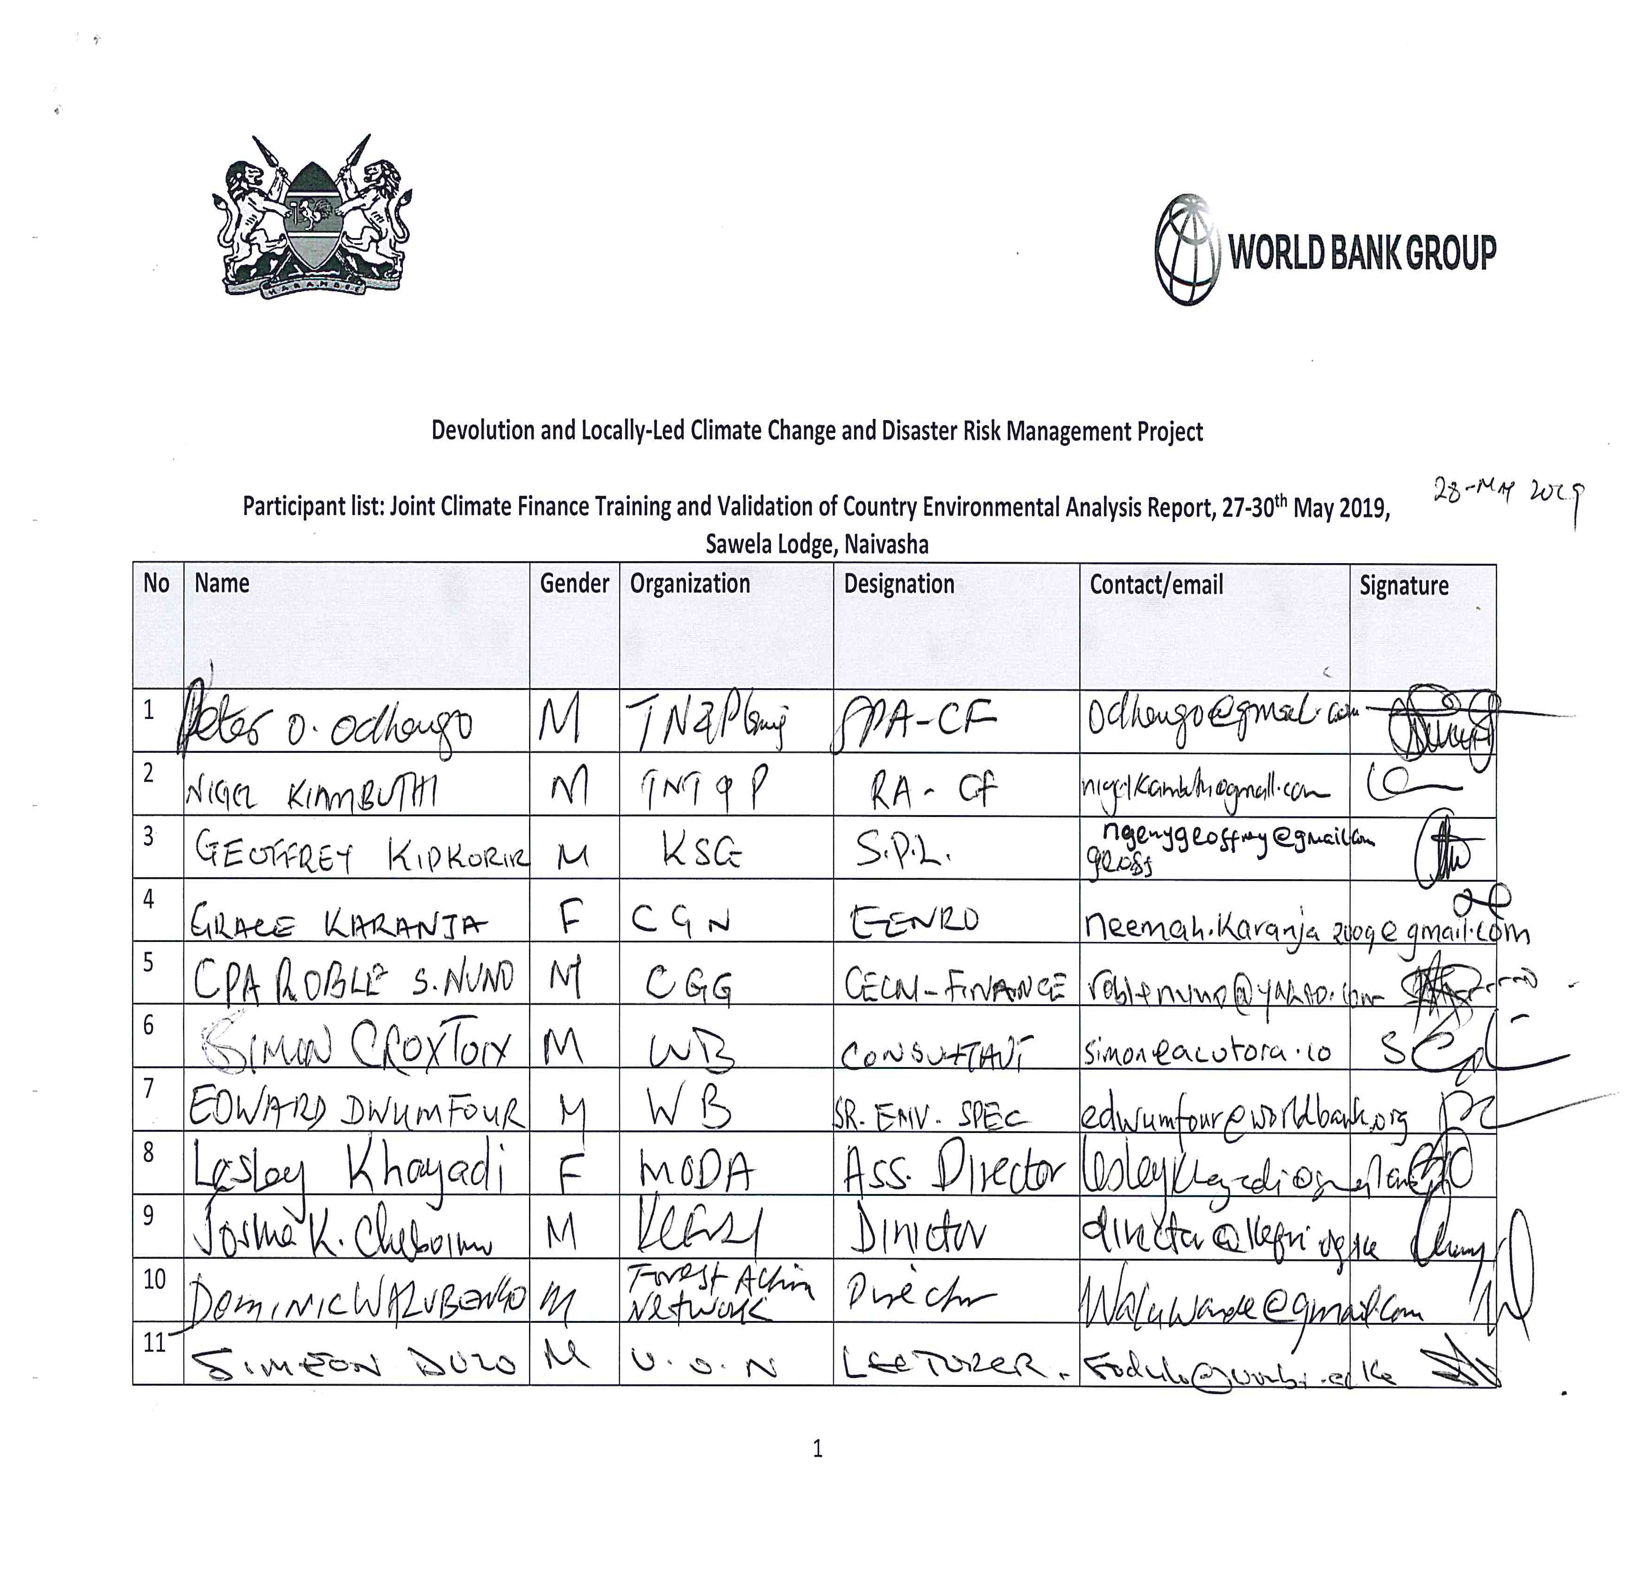 HARAMBEE
WORLD BANK GROUP
Devolution and Locally-Led Climate Change and Disaster Risk Management Project
28-May 2019
Participant list: Joint Climate Finance Training and Validation of Country Environmental Analysis Report, 27-30th May 2019,
Sawela Lodge, Naivasha
No Name Gender Organization Designation Contact/email Signature
1 Peter O. Odhengo M PA-CF odhengo@gmail.com
2 NIGEL KIAMBUTHI M RA-CF
3 GEOFFREY KIPKORIR M KSG S.P.L. ngenygeoffrey@gmail.com
4 GRACE KARANJA F CGN neemah.karanja2009@gmail.com
5 CPA ROBLE S. NUNO M CGG CECM-FINANCE roblenuno@yahoo.com
6 SIMON CROXTON M WB CONSULTANT simon@acutora.io
7 EDWARD DWUMFOUR M WB SR. ENV. SPEC edwumfour@worldbank.org
8 Lesley Khayadi F MODA Ass. Director
9 Joshua K. Cheboiwo M KEFRI Director director@kefri.org
10 DOMINIC WALUBENGO M Forest Action Network Director
11 SIMEON M U.O.N LECTURER.
1